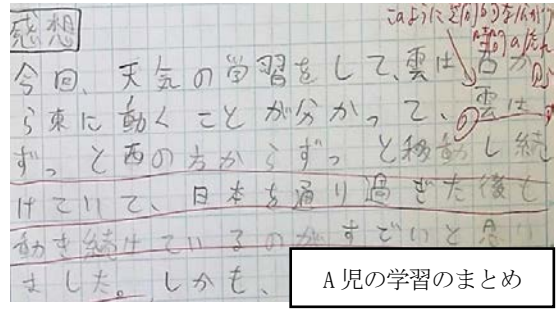 感想
このように
今回、天気の学習をして、雲は西か
ら東に動くことが分かって、雲は
ずっと西の方からずっと移動し続
けていて、日本を通り過ぎた後も
動き続けているのがすごいと思い
ました。しかも、
A児の学習のまとめ